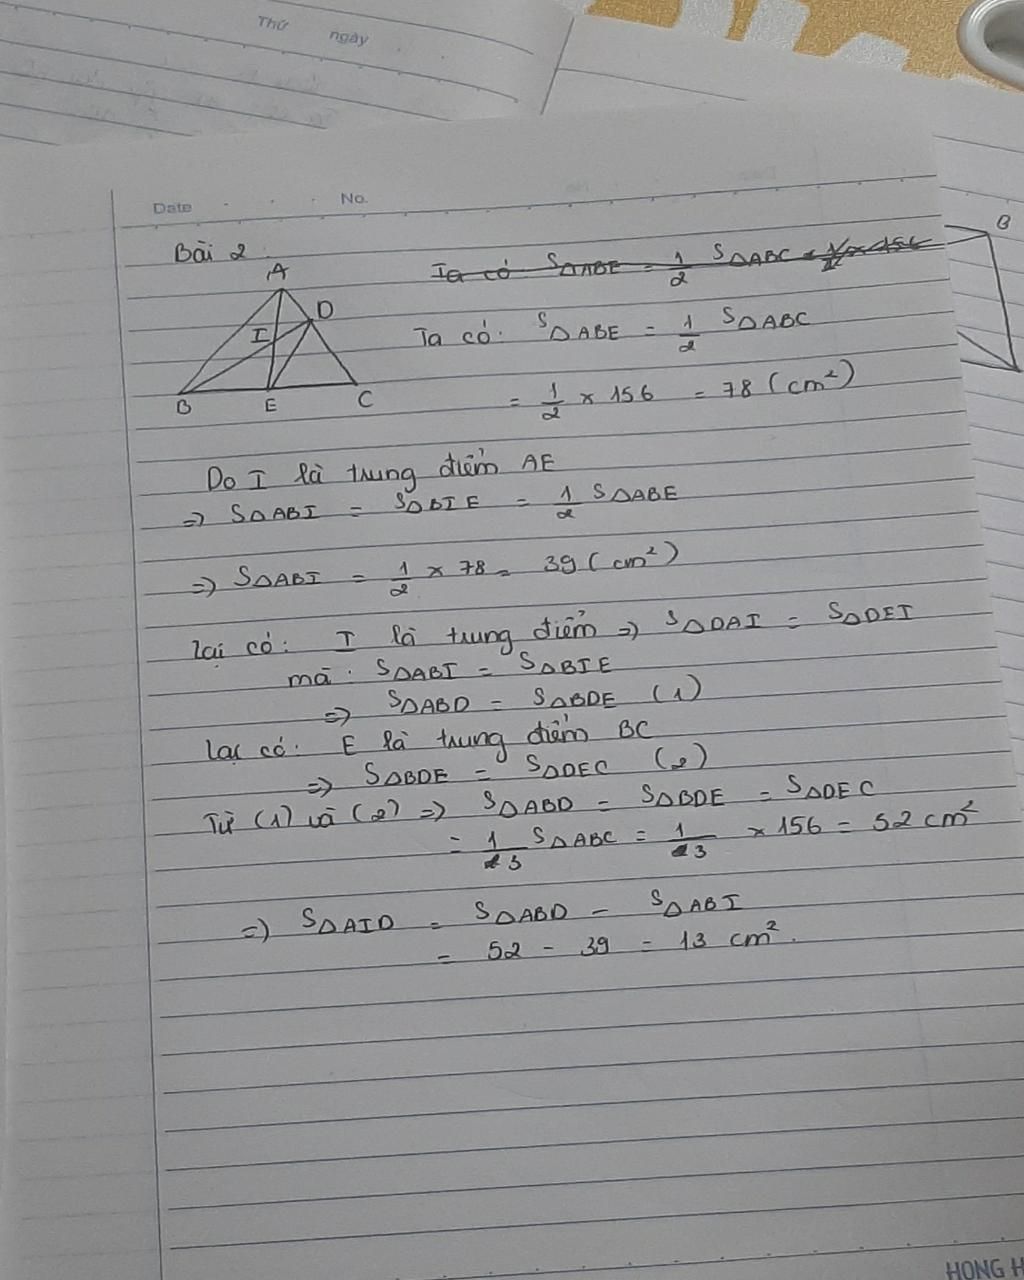 Thứ
ngày
Date
No.
Bài 2.
A
D
I
B
E
C
B
Ta có S△ABE = 1/2 S△ABC = 1/2 x 156
Ta có: S△ABE = 1/2 S△ABC
= 1/2 x 156 = 78 (cm²)
Do I là trung điểm AE
=> S△ABI = S△BIE = 1/2 S△ABE
=> S△ABI = 1/2 x 78 = 39 (cm²)
Lại có: I là trung điểm => S△DAI = S△DEI
mà: S△ABI = S△BIE
=> S△ABD = S△BDE (1)
Lại có: E là trung điểm BC
=> S△BDE = S△DEC (2)
Từ (1) và (2) => S△ABD = S△BDE = S△DEC
= 1/3 S△ABC = 1/3 x 156 = 52 cm²
=> S△AID = S△ABD - S△ABI
= 52 - 39 = 13 cm².
HONG H